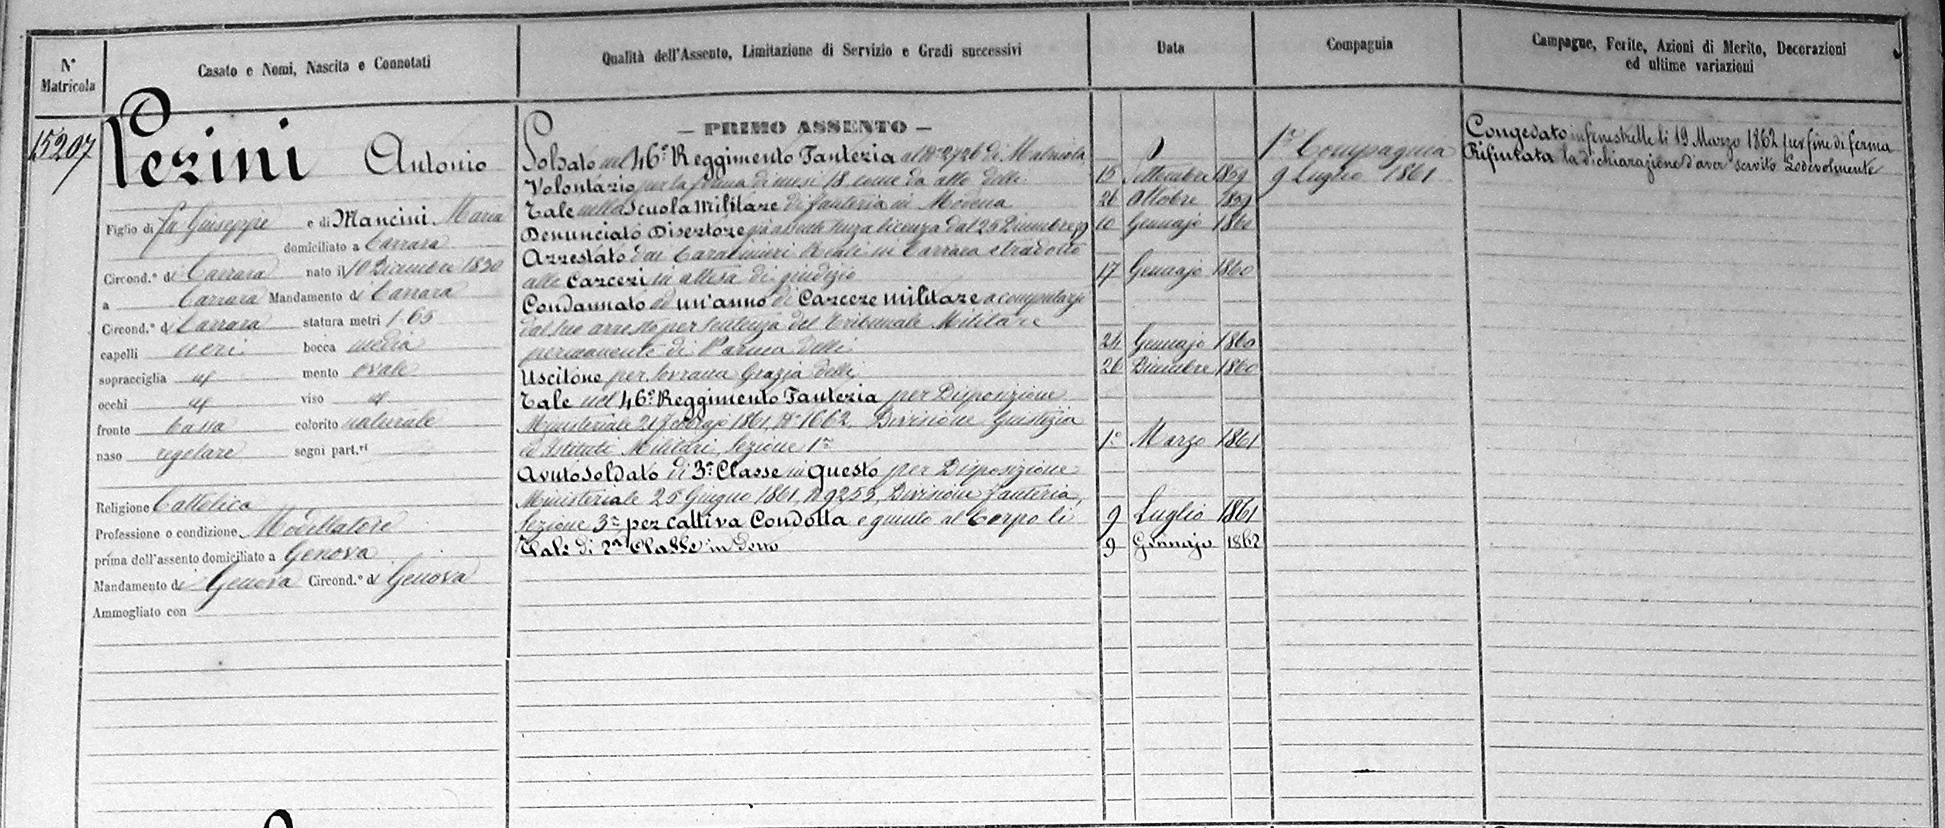 N° Matricola
Casato e Nomi, Nascita e Connotati
Qualità dell'Assento, Limitazione di Servizio e Gradi successivi
Data
Compagnia
Campagne, Ferite, Azioni di Merito, Decorazioni
ed ultime variazioni
15207
Pezini Antonio
Figlio di fu Giuseppe e di Mancini Maria
domiciliato a Carrara
Circond.° di Carrara nato il 10 Dicembre 1830
a Carrara Mandamento di Carrara
Circond.° di Carrara statura metri 1.65
capelli neri bocca media
sopracciglia mento ovale
occhi viso
fronte bassa colorito naturale
naso regolare segni part.ri
Religione Cattolica
Professione o condizione Modellatore
prima dell'assento domiciliato a Genova
Mandamento di Genova Circond.° di Genova
Ammogliato con
— PRIMO ASSENTO —
Soldato nel 46° Reggimento Fanteria al N° 2726 di Matricola
Volontario per la ferma di mesi 18 come da atto delli 15 Settembre 1859
Tale nella Scuola Militare di fanteria in Modena 26 Ottobre 1859
Denunciato Disertore già assente senza licenza dal 25 Dicembre 59 10 Gennajo 1860
Arrestato dai Carabinieri Reali in Carrara e tradotto
alle Carceri in attesa di giudizio 17 Gennajo 1860
Condannato ad un'anno di Carcere militare a computarsi
dal suo arresto per sentenza del Tribunale Militare
permanente di Parma delli 24 Gennajo 1860
Uscitone per Sovrana Grazia delli 26 Dicembre 1860
Tale nel 46° Reggimento Fanteria per Disposizione
Ministeriale 21 Febbrajo 1861, N° 1662 Divisione Giustizia
ed Istituti Militari, Sezione 1ª 1° Marzo 1861
Avuto Soldato di 3ª Classe in Questo per Disposizione
Ministeriale 25 Giugno 1861, N 9253, Divisione fanteria,
Sezione 3ª per cattiva Condotta e giunto al Corpo li 9 Luglio 1861
Tale di 2ª Classe in Detto 9 Gennajo 1862
1ª Compagnia
9 Luglio 1861
Congedato in fenestrelle li 19 Marzo 1862 per fine di ferma
Rifiutata la dichiarazione d'aver servito Lodevolmente